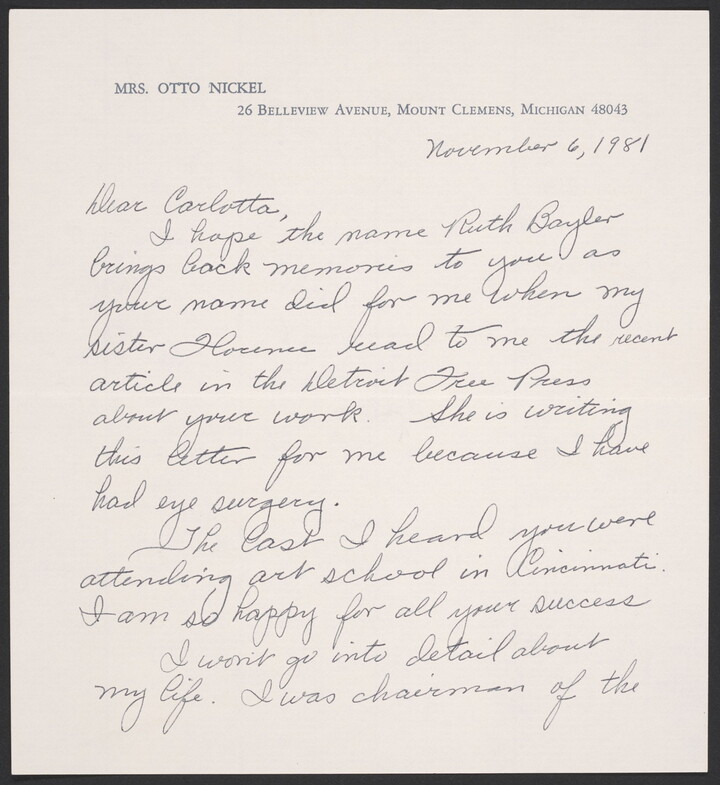 MRS. OTTO NICKEL
26 BELLEVIEW AVENUE, MOUNT CLEMENS, MICHIGAN 48043
November 6, 1981
Dear Carlotta,
I hope the name Ruth Bayler
brings back memories to you as
your name did for me when my
sister Florence read to me the recent
article in the Detroit Free Press
about your work. She is writing
this letter for me because I have
had eye surgery.
The last I heard you were
attending art school in Cincinnati.
I am so happy for all your success
I won't go into detail about
my life. I was chairman of the